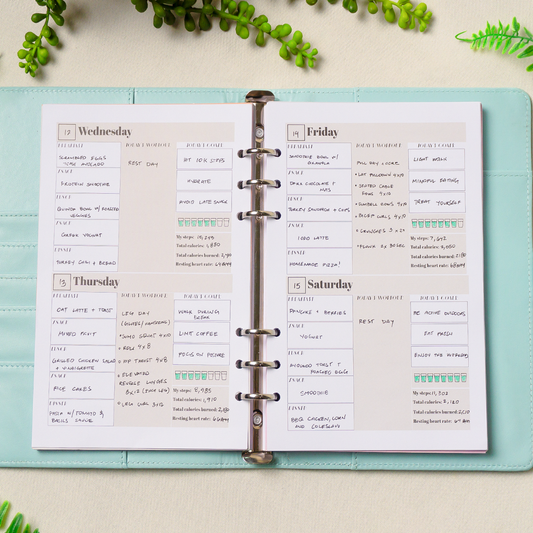 12 Wednesday
BREAKFAST
SCRAMBLED EGGS
AVOCADO
SNACK
PROTEIN SMOOTHIE
LUNCH
QUINOA BOWL W/ ROASTED
VEGGIES
SNACK
GREEK YOGURT
DINNER
TURKEY CHILI + BREAD
TODAY'S WORKOUT
REST DAY
TODAY'S GOALS
HIT 10K STEPS
HYDRATE
AVOID LATE SNACK
My steps:
Total calories: 1,880
Total calories burned:
Resting heart rate:
13 Thursday
BREAKFAST
OAT LATTE + TOAST
SNACK
MIXED FRUIT
LUNCH
GRILLED CHICKEN SALAD
+ VINAIGRETTE
SNACK
RICE CAKES
DINNER
PASTA W/ TOMATO &
BASIL SAUCE
TODAY'S WORKOUT
LEG DAY
(GLUTES/HAMSTRINGS)
+ RDLS 4X8
+ HIP THRUST 4X8
+ ELEVATED
REVERSE LUNGES
3X12 (EACH LEG)
+ LEG CURL 3X12
TODAY'S GOALS
WALK DURING
BREAK
LIMIT COFFEE
FOCUS ON POSTURE
My steps: 8,985
Total calories: 1,910
Total calories burned:
Resting heart rate:
14 Friday
BREAKFAST
SMOOTHIE BOWL W/
SNACK
DARK CHOCOLATE +
NUTS
LUNCH
TURKEY SANDWICH + CHIPS
SNACK
ICED LATTE
DINNER
HOMEMADE PIZZA!
TODAY'S WORKOUT
PULL DAY + CORE
+ LAT PULLDOWN 4X10
+ SEATED CABLE
ROWS 4X10
+ DUMBBELL ROWS
+ BICEP CURLS 4X10
+ CRUNCHES 3 X 20
+ PLANK 3X 30SEC
TODAY'S GOALS
LIGHT MEAL
MINDFUL EATING
TREAT YOURSELF
My steps: 7,642
Total calories:
Total calories burned:
Resting heart rate:
15 Saturday
BREAKFAST
PANCAKES + BERRIES
SNACK
YOGURT
LUNCH
AVOCADO TOAST +
POACHED EGGS
SNACK
SMOOTHIE
DINNER
BBQ CHICKEN, CORN
AND COLESLAW
TODAY'S WORKOUT
REST DAY
TODAY'S GOALS
BE ACTIVE OUTDOORS
EAT FRESH
ENJOY THE WEEKEND
My steps: 11,302
Total calories: 2,120
Total calories burned:
Resting heart rate: